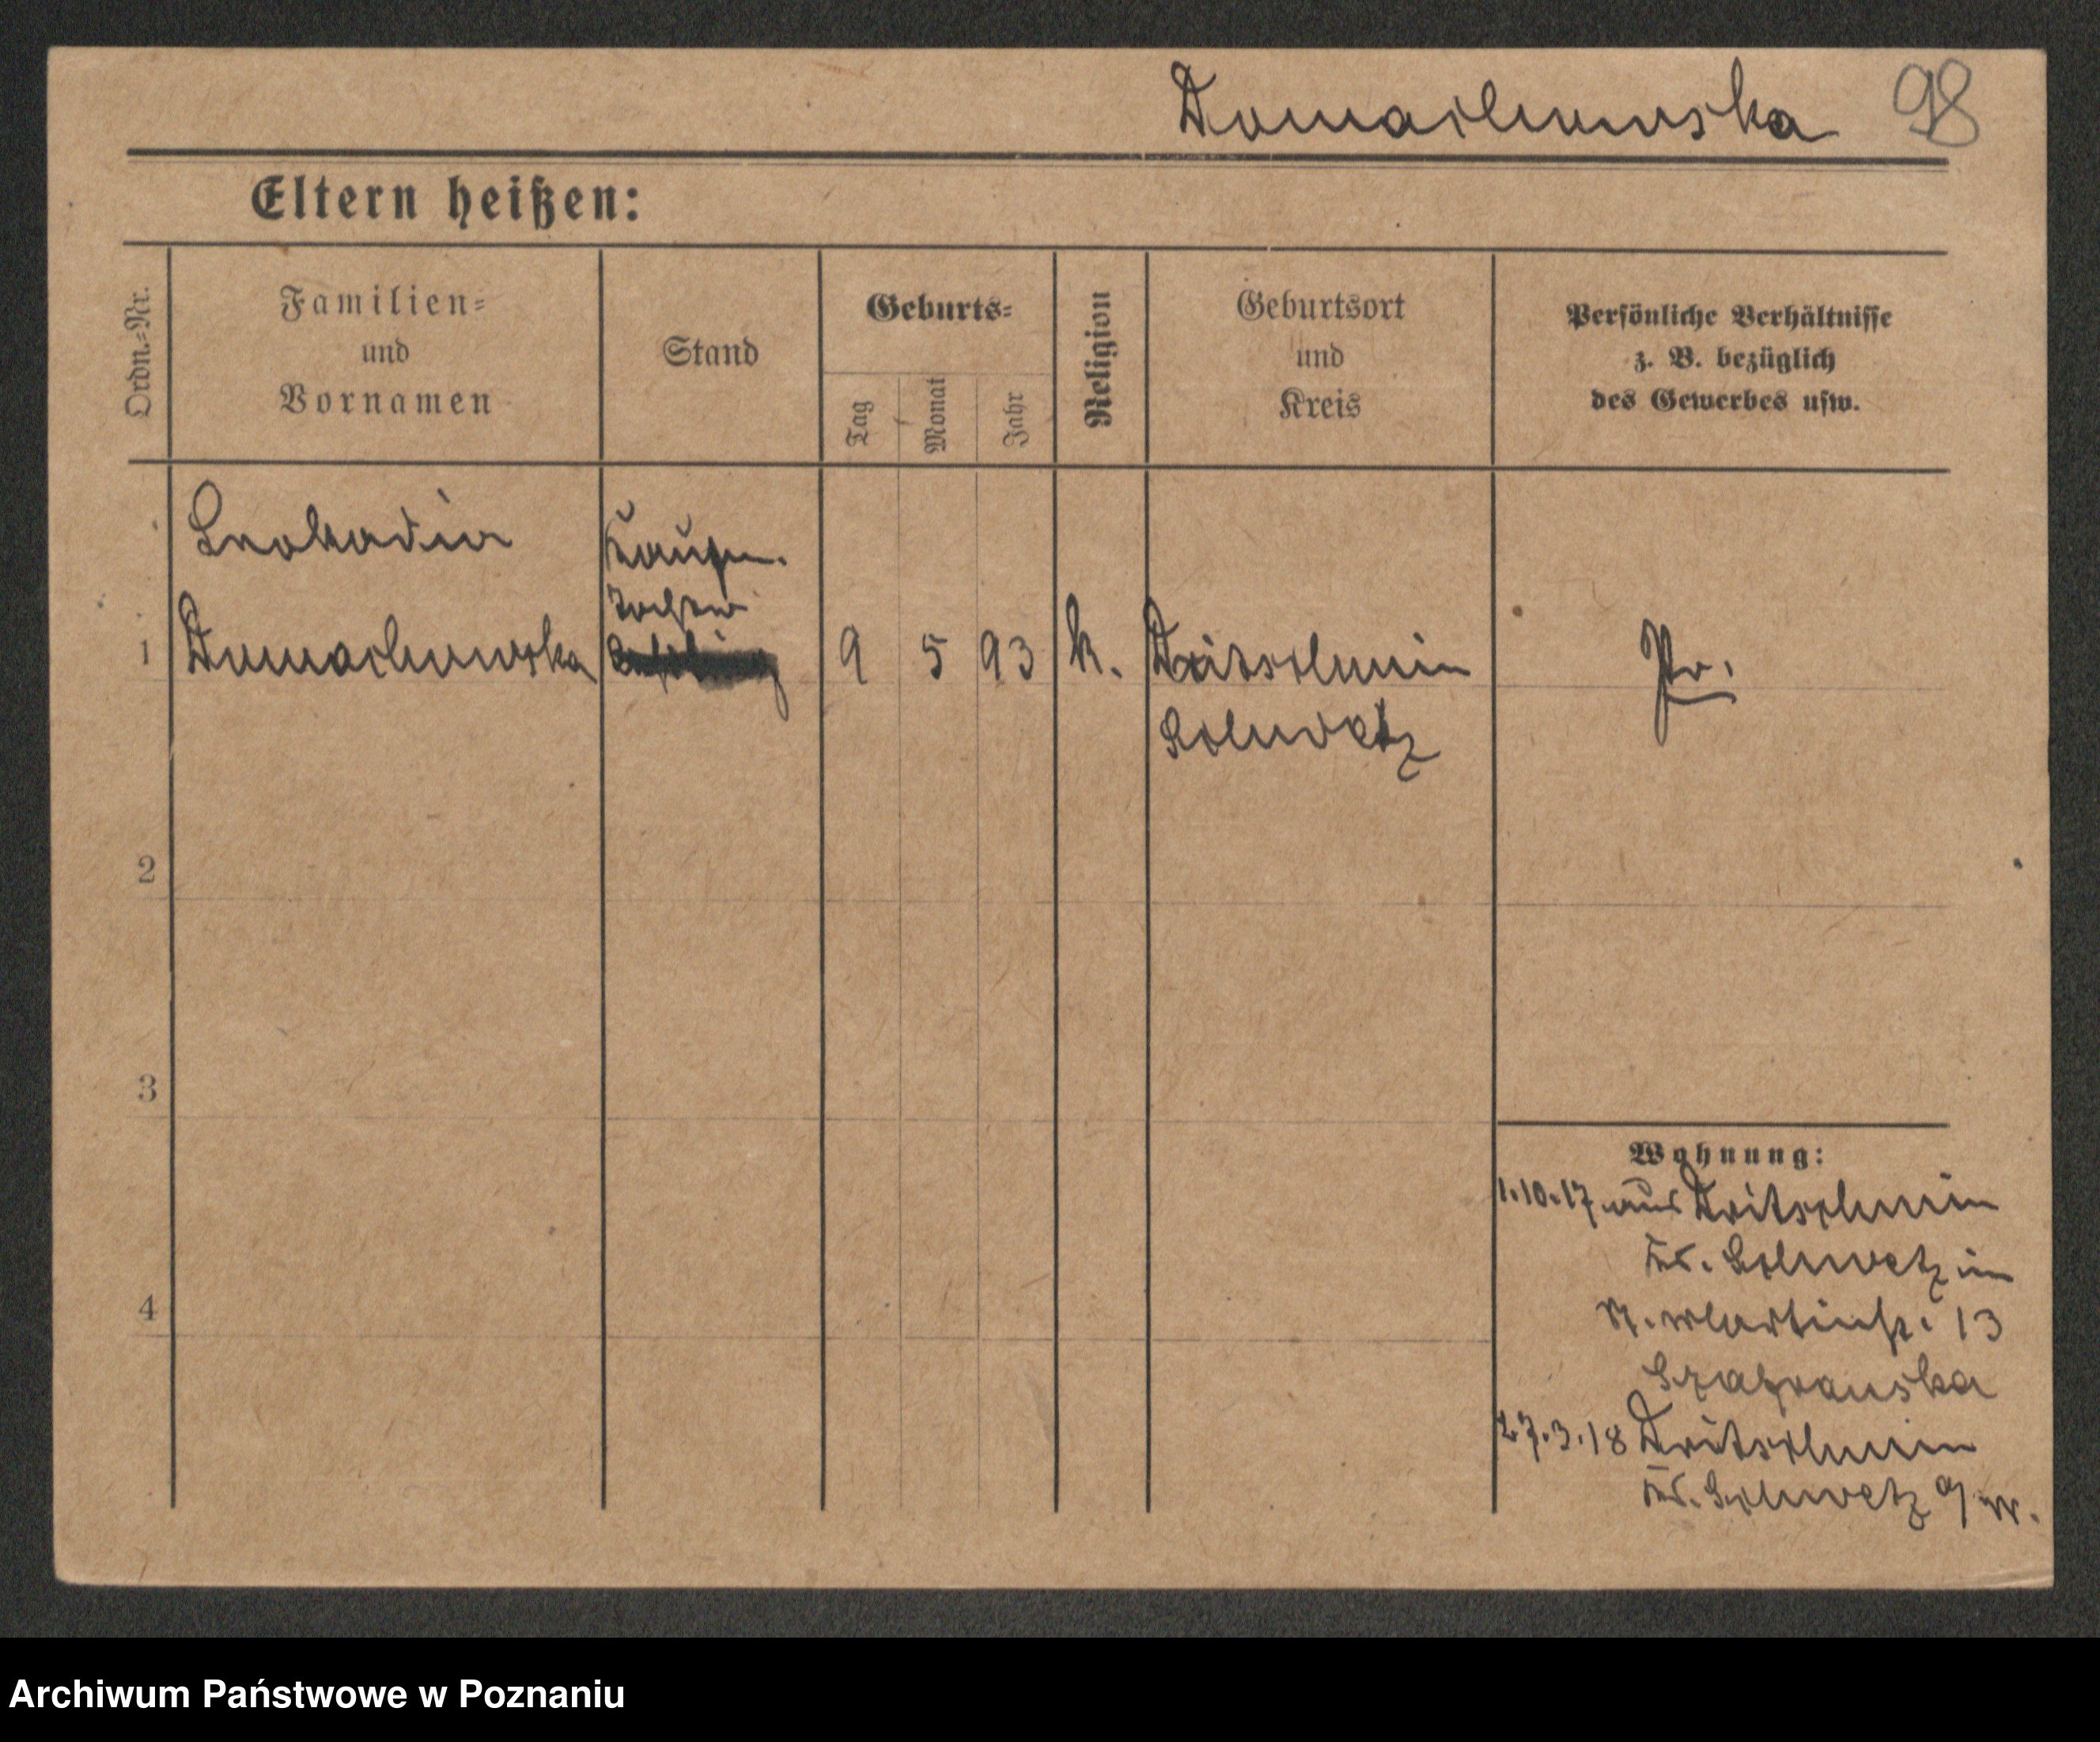 Domachowska 98
Eltern heißen:
Ordn.=Nr.
Familien=
und
Vornamen
Stand
Geburts=
Tag
Monat
Jahr
Religion
Geburtsort
und
Kreis
Persönliche Verhältnisse
z. B. bezüglich
des Gewerbes usw.
Leokadia
Kaufm.
1 Domachowska 9 5 93 k. Dritschmin Pr.
Schwetz
2
3
4
Wohnung:
1.10.17 aus Dritschmin
Kr. Schwetz in
St. Martinstr. 13
Szafranska
27.3.18 Dritschmin
Kr. Schwetz a/W.
Archiwum Państwowe w Poznaniu